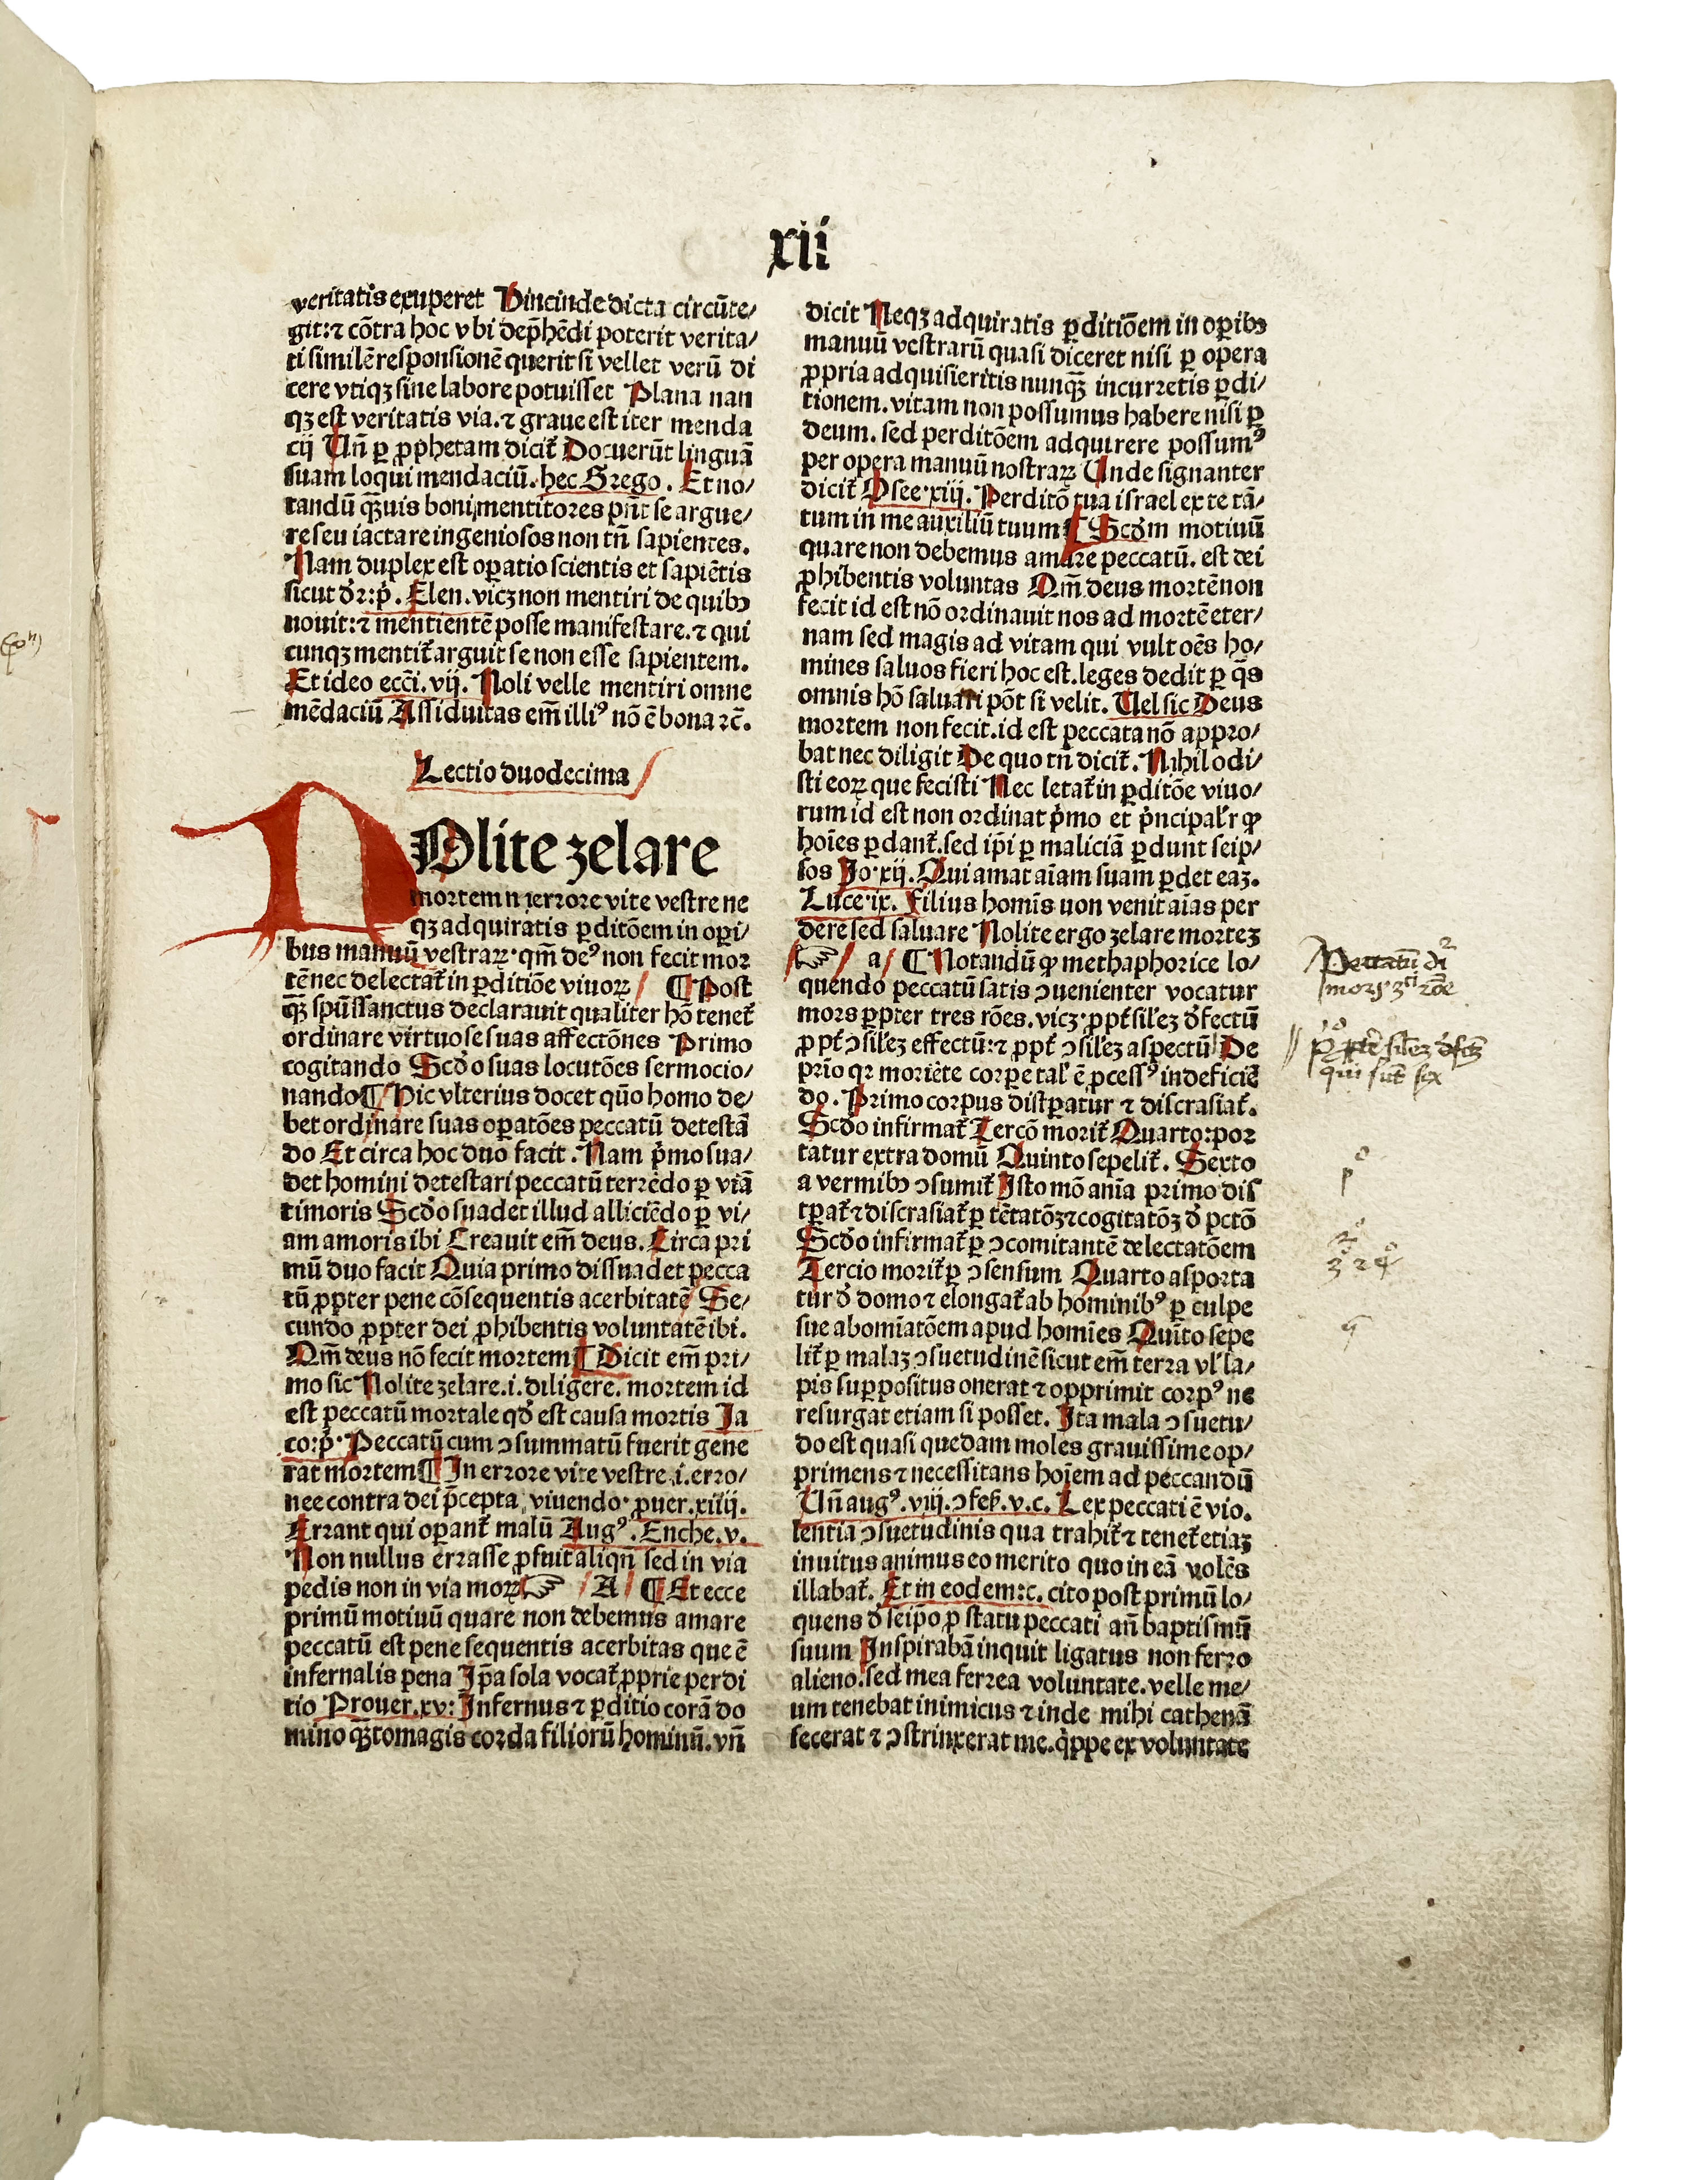 xii
veritatis exuperet Vincinde dicta circūte/
git: ⁊ cōtra hoc vbi dep̄hēdi poterit verita/
ti similē responsionē querit si vellet verū di
cere vtiqꝫ sine labore potuisset Plana nan
qꝫ est veritatis via. ⁊ graue est iter menda
cij Un̄ ꝑ ꝓphetam dicit᷑ Docuerūt linguā
suam loqui mendaciū. hec Grego. Et no/
tandū qꝫuis boni mentitores pn̄t se argue/
re seu iactare ingeniosos non tn̄ sapientes.
Nam duplex est oꝑatio scientis et sapiētis
sicut dr̄: p̄. Elen. vicꝫ non mentiri de quibꝰ
nouit: ⁊ mentientē posse manifestare. ⁊ qui
cunqꝫ mentit᷑ arguit se non esse sapientem.
Et ideo ecci̅. vij. Noli velle mentiri omne
mēdaciū Assiduitas em̄ illiꝰ nō ē bona ⁊c̄.
Lectio duodecima
NOlite zelare
mortem in errore vite vestre ne
qꝫ adquiratis ꝑditōem in oꝑi/
bus manuū vestraꝝ. qm̄ deꝰ non fecit mor
tē nec delectat᷑ in ꝑditiōe viuoꝝ ¶ Post
qꝫ spūssanctus declarauit qualiter hō tenet᷑
ordinare virtuose suas affectōnes Primo
cogitando Scd̄o suas locutōes sermocio/
nando ¶ Hic vlterius docet qūo homo de/
bet ordinare suas oꝑatōes peccatū detestā
do Et circa hoc duo facit. Nam p̄mo sua/
det homini detestari peccatū terrēdo ꝑ viā
timoris Scd̄o suadet illud alliciēdo ꝑ vi/
am amoris ibi Creauit em̄ deus. Circa pri
mū duo facit Quia primo dissuadet pecca
tū ꝓpter pene cōsequentis acerbitatē Se/
cundo ꝓpter dei ꝓhibentis voluntatē ibi.
Qm̄ deus nō fecit mortem ¶ Dicit em̄ pri/
mo sic Nolite zelare .i. diligere. mortem id
est peccatū mortale qd̄ est causa mortis Ja
co: p̄. Peccatū cum ꝯsummatū fuerit gene
rat mortem ¶ In errore vite vestre .i. erro/
nee contra dei p̄cepta viuendo. ꝓuer. xiiij.
Errant qui oꝑant᷑ malū Augꝰ. Enche. v.
Non nullus errasse ꝓfuit aliqn̄ sed in via
pedis non in via moꝝ ☞ A ¶ Et ecce
primū motiuū quare non debemus amare
peccatū est pene sequentis acerbitas que ē
infernalis pena Ip̄a sola vocat᷑ ꝓprie perdi
tio Prouer. xv: Infernus ⁊ ꝑditio corā do
mino qꝫtomagis corda filiorū hominū. vn̄
dicit Neqꝫ adquiratis ꝑditiōem in oꝑibꝰ
manuū vestrarū quasi diceret nisi ꝑ opera
ꝓpria adquisieritis nunqꝫ incurretis ꝑdi/
tionem. vitam non possumus habere nisi ꝑ
deum. sed perditōem adquirere possumꝰ
per opera manuū nostraꝝ Unde signanter
dicit᷑ Osee. xiij. Perditō tua israel ex te tā/
tum in me auxiliū tuum ¶ Scd̄m motiuū
quare non debemus amare peccatū. est dei
ꝓhibentis voluntas Qm̄ deus mortē non
fecit id est nō ordinauit nos ad mortē eter/
nam sed magis ad vitam qui vult oēs ho/
mines saluos fieri hoc est. leges dedit ꝑ q̄s
omnis hō saluari pōt si velit. Uel sic Deus
mortem non fecit. id est peccata nō appro/
bat nec diligit De quo tn̄ dicit᷑. Nihil odi/
sti eoꝝ que fecisti Nec letat᷑ in ꝑditōe viuo/
rum id est non ordinat p̄mo et p̄ncipalr̄ ꝙ
hoīes ꝑdant᷑. sed ip̄i ꝑ maliciā ꝑdunt seip/
sos Jo. xij. Qui amat aīam suam ꝑdet eaꝫ.
Luce. ix. Filius homīs non venit aīas per
dere sed saluare Nolite ergo zelare morteꝫ
☞ a ¶ Notandū ꝙ methaphorice lo/
quendo peccatū satis ꝯuenienter vocatur
mors ꝓpter tres rōes. vicꝫ. ꝓpt᷑ silʼeꝫ d̄fectū
ꝓpt᷑ ꝯsilʼeꝫ effectū: ⁊ ꝓpt᷑ ꝯsilʼeꝫ aspectū De
prīo qꝛ moriēte corꝑe talʼ ē ꝓcessꝰ in deficiē
do. Primo corpus distꝑatur ⁊ discrasiat᷑.
Scd̄o infirmat᷑ Tercō morit᷑ Quarto: por
tatur extra domū Quinto sepelit᷑. Sexto
a vermibꝰ ꝯsumit᷑ Isto mō anīa primo dis
tꝑat᷑ ⁊ discrasiat᷑ ꝑ tētatōꝫ ⁊ cogitatōꝫ d̄ pctō
Scd̄o infirmat᷑ ꝑ ꝯcomitantē delectatōem
Tercio morit᷑ ꝑ ꝯsensum Quarto asporta
tur d̄ domo ⁊ elongat᷑ ab hominibꝰ ꝑ culpe
sue abomīatōem apud homīes Quīto sepe
lit᷑ ꝑ malaꝫ ꝯsuetudinē sicut em̄ terra vlʼ la/
pis suppositus onerat ⁊ opprimit corpꝰ ne
resurgat etiam si posset. Ita mala ꝯsuetu/
do est quasi quedam moles grauissime op/
primens ⁊ necessitans hoīem ad peccandū
Un̄ augꝰ. viij. ꝯfeſ. v. c. Lex peccati ē vio.
lentia ꝯsuetudinis qua trahit᷑ ⁊ tenet᷑ etiaꝫ
inuitus animus eo merito quo in eā volēs
illabat᷑. Et in eodem: c. cito post primū lo/
quens d̄ seip̄o ꝓ statu peccati an̄ baptismū
suum Inspirabā inquit ligatus non ferro
alieno. sed mea ferrea voluntate. velle me/
um tenebat inimicus ⁊ inde mihi cathenā
fecerat ⁊ ꝯstrinxerat me. q̄ppe ex voluntate
Peccatū di